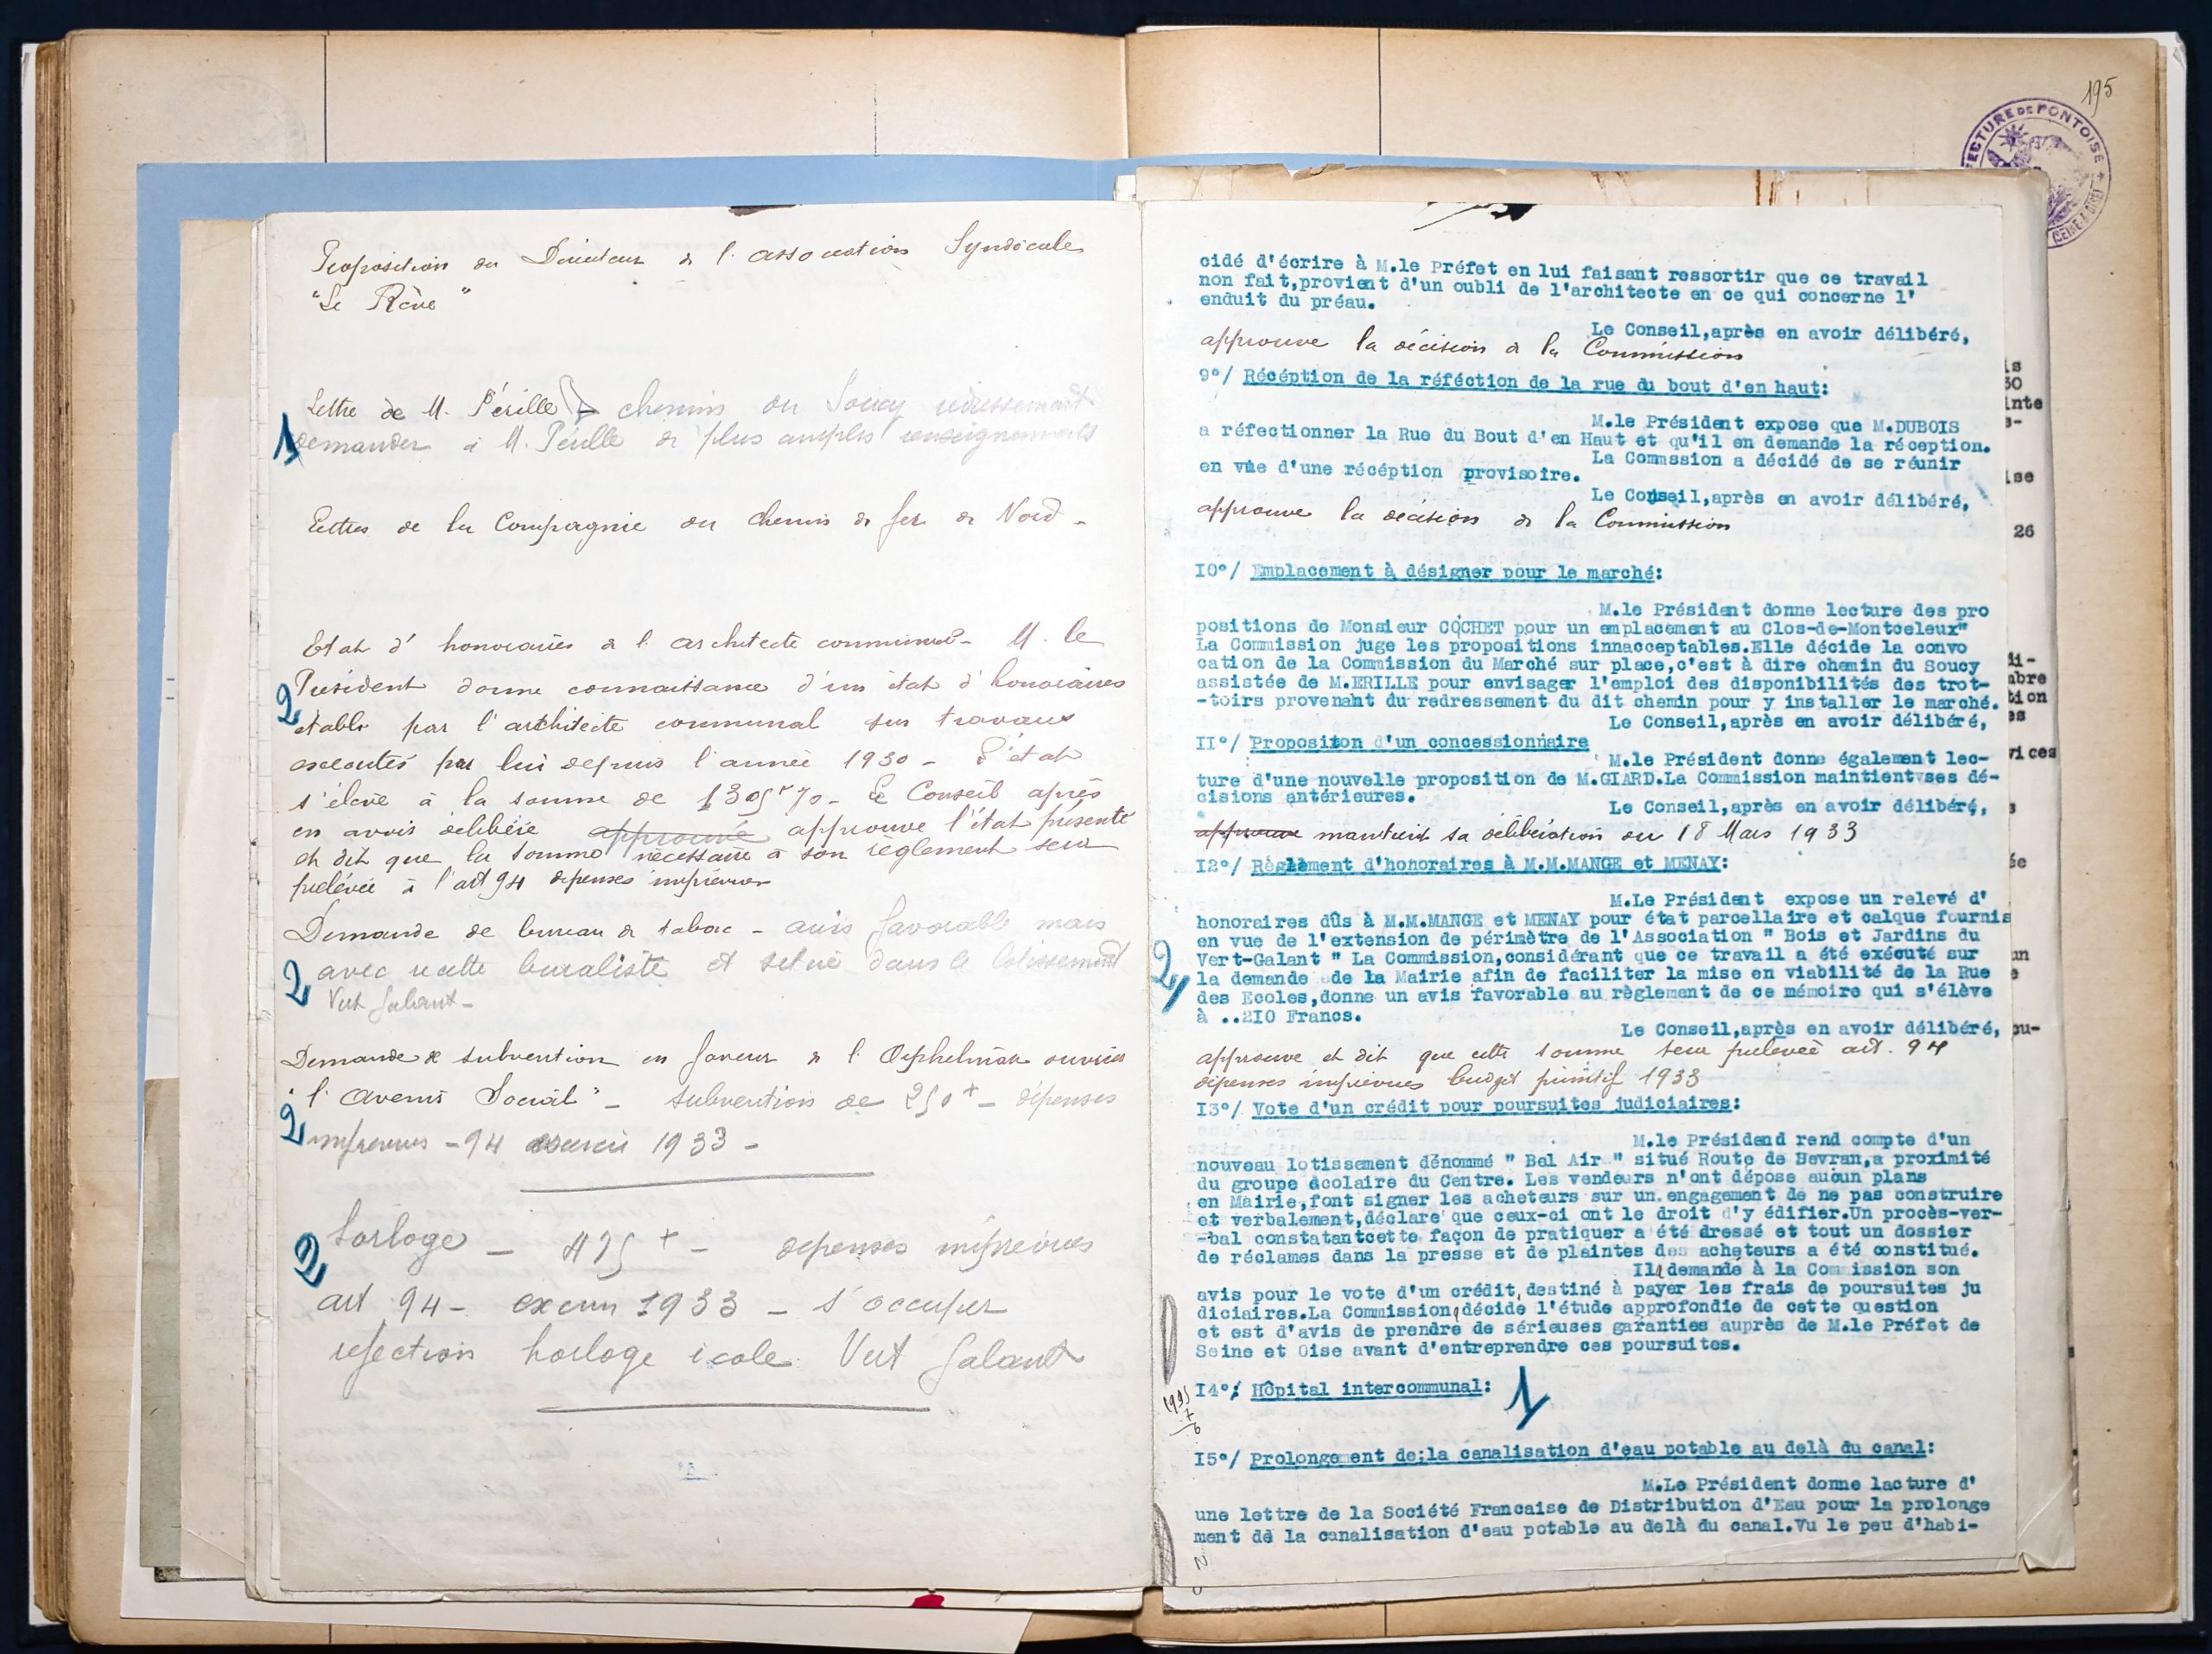 Proposition du Directeur de l'association Syndicale
"Le Rêve"
Lettre de M. Pérille - chemin du Soucy redressement
1 demander à M. Pérille de plus amples renseignements
Lettres de la Compagnie du chemin de fer du Nord -
Etat d'honoraires de l'architecte communal - M. le
Président donne connaissance d'un état d'honoraires
2
établi par l'architecte communal sur travaux
exécutés par lui depuis l'année 1930 - L'état
s'élève à la somme de Le Conseil après
en avoir délibéré approuvé approuve l'état présenté
et dit que la somme nécessaire à son règlement sera
prélevée à l'art 94 dépenses imprévues
Demande de bureau de tabac - avis favorable mais
2 avec recette buraliste et situé dans le lotissement
Vert Galant -
Demande de subvention en faveur de l'Orphelinat ouvrier
"l'Avenir Social" - subvention de 250 + - dépenses
2 imprévues - 94 exercice 1933 -
2 horloge - 425 + - dépenses imprévues
art 94 - exercice 1933 - s'occuper
refection horloge école Vert Galant
195
ECTURE DE PONTOISE
(SEINE-&-OISE)
cidé d'écrire à M.le Préfet en lui faisant ressortir que ce travail
non fait,provient d'un oubli de l'architecte en ce qui concerne l'
enduit du préau.
Le Conseil,après en avoir délibéré,
approuve la décision de la Commission
9°/ Récéption de la réféction de la rue du bout d'en haut:
M.le Président expose que M.DUBOIS
a réfectionner la Rue du Bout d'en Haut et qu'il en demande la réception.
La Commssion a décidé de se réunir
en vue d'une récéption provisoire.
Le Conseil,après en avoir délibéré,
approuve la décision de la Commission
I0°/ Emplacement à désigner pour le marché:
M.le Président donne lecture des pro
positions de Monsieur COCHET pour un emplacement au Clos-de-Montceleux"
La Commission juge les propositions innacceptables.Elle décide la convo
cation de la Commission du Marché sur place,c'est à dire chemin du Soucy
assistée de M.ERILLE pour envisager l'emploi des disponibilités des trot-
-toirs provenant du redressement du dit chemin pour y installer le marché.
Le Conseil,après en avoir délibéré,
II°/ Propositon d'un concessionnaire
M.le Président donne également lec-
ture d'une nouvelle proposition de M.GIARD.La Commission maintient ses dé-
cisions antérieures.
Le Conseil,après en avoir délibéré,
approuve maintient sa délibération du 18 Mars 1933
I2°/ Réglèment d'honoraires à M.M.MANGE et MENAY:
M.Le Président expose un relevé d'
honoraires dûs à M.M.MANGE et MENAY pour état parcellaire et calque fournis
en vue de l'extension de périmètre de l'Association " Bois et Jardins du
Vert-Galant " La Commission,considérant que ce travail a été exécuté sur
2 la demande de la Mairie afin de faciliter la mise en viabilité de la Rue
des Ecoles,donne un avis favorable au règlement de ce mémoire qui s'élève
à ..210 Francs.
Le Conseil,après en avoir délibéré,
approuve et dit que cette somme sera prélevée art. 94
dépenses imprévues budget primitif 1933
I3°/ Vote d'un crédit pour poursuites judiciaires:
M.le Présidend rend compte d'un
nouveau lotissement dénommé " Bel Air " situé Route de Sevran,a proximité
du groupe scolaire du Centre. Les vendeurs n'ont dépose aucun plans
en Mairie,font signer les acheteurs sur un engagement de ne pas construire
et verbalement,déclare que ceux-ci ont le droit d'y édifier.Un procès-ver-
-bal constatantcette façon de pratiquer a été dressé et tout un dossier
de réclames dans la presse et de plaintes des acheteurs a été constitué.
Il demande à la Com ission son
avis pour le vote d'un crédit,destiné à payer les frais de poursuites ju
diciaires.La Commission décide l'étude approfondie de cette question
et est d'avis de prendre de sérieuses garanties auprès de M.le Préfet de
Seine et Oise avant d'entreprendre ces poursuites.
I4°/ Hôpital intercommunal: 1
I5°/ Prolongement de la canalisation d'eau potable au delà du canal:
M.Le Président donne lacture d'
une lettre de la Société Francaise de Distribution d'Eau pour la prolonge
ment de la canalisation d'eau potable au delà du canal.Vu le peu d'habi-
is
30
inte
ise
26
di-
mbre
tion
es
vices
ée
un
e
ou-